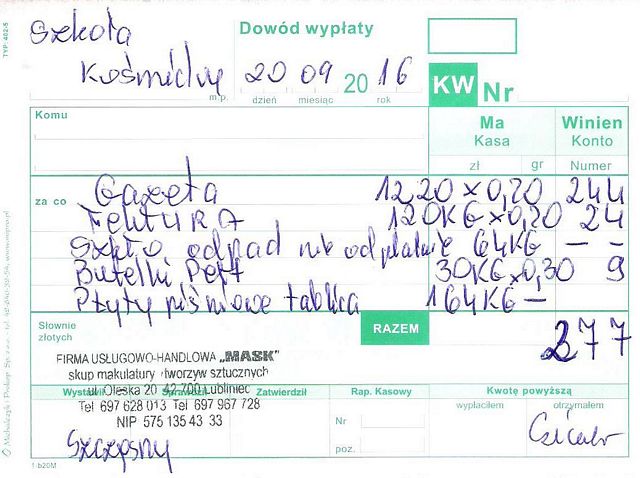 TYP: 402-5
Szkoła
Dowód wypłaty
20 09 2016
m.p. dzień miesiąc rok
KW Nr
Komu
Ma Winien
Kasa Konto
zł gr Numer
za co
Gazeta 1220 x 0,20 244
TEKTURA 120KG x 0,20 24
Szkło odpad nie odpłatnie 64KG — —
Butelki Pett 30KG x 0,30 9
Płyty pilśniowe tablica 164KG —
Słownie
złotych
RAZEM 277
FIRMA USŁUGOWO-HANDLOWA „MASK"
skup makulatury i tworzyw sztucznych
ul. Oleska 20 42-700 Lubliniec
Tel 697 628 013 Tel 697 967 728
NIP 575 135 43 33
Wystawił Sprawdził Zatwierdził Rap. Kasowy Kwotę powyższą
wypłaciłem otrzymałem
Nr
poz.
Szczęsny
1-b20M